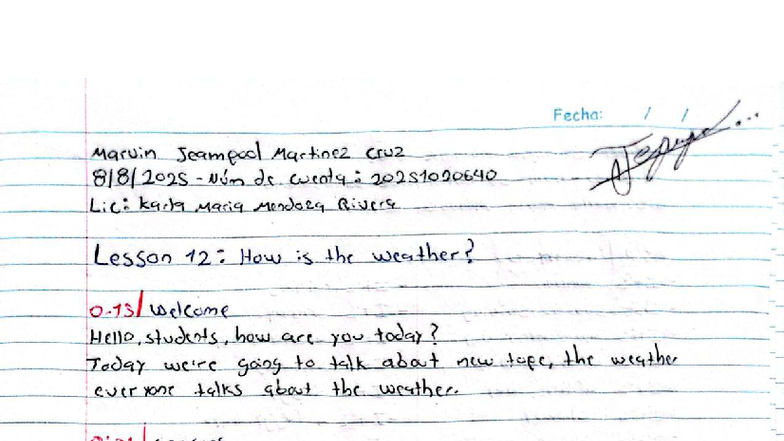 Fecha: / /
Marvin Jeampool Martinez Cruz
8/8/2025 - Núm de cuenta: 20251020640
Lic: Karla Maria Mendoza Rivera
Lesson 12: How is the weather?
0.13/ Welcome
Hello, students, how are you today?
Today we're going to talk about new tope, the weather
everyone talks about the weather.